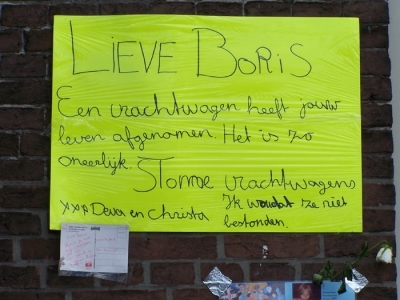 LIEVE BORIS
Een vrachtwagen heeft jouw
leven afgenomen. Het is zo
oneerlijk.
STOMME vrachtwagens
Ik woudat ze niet
xxx Deva en Christa
bestonden.